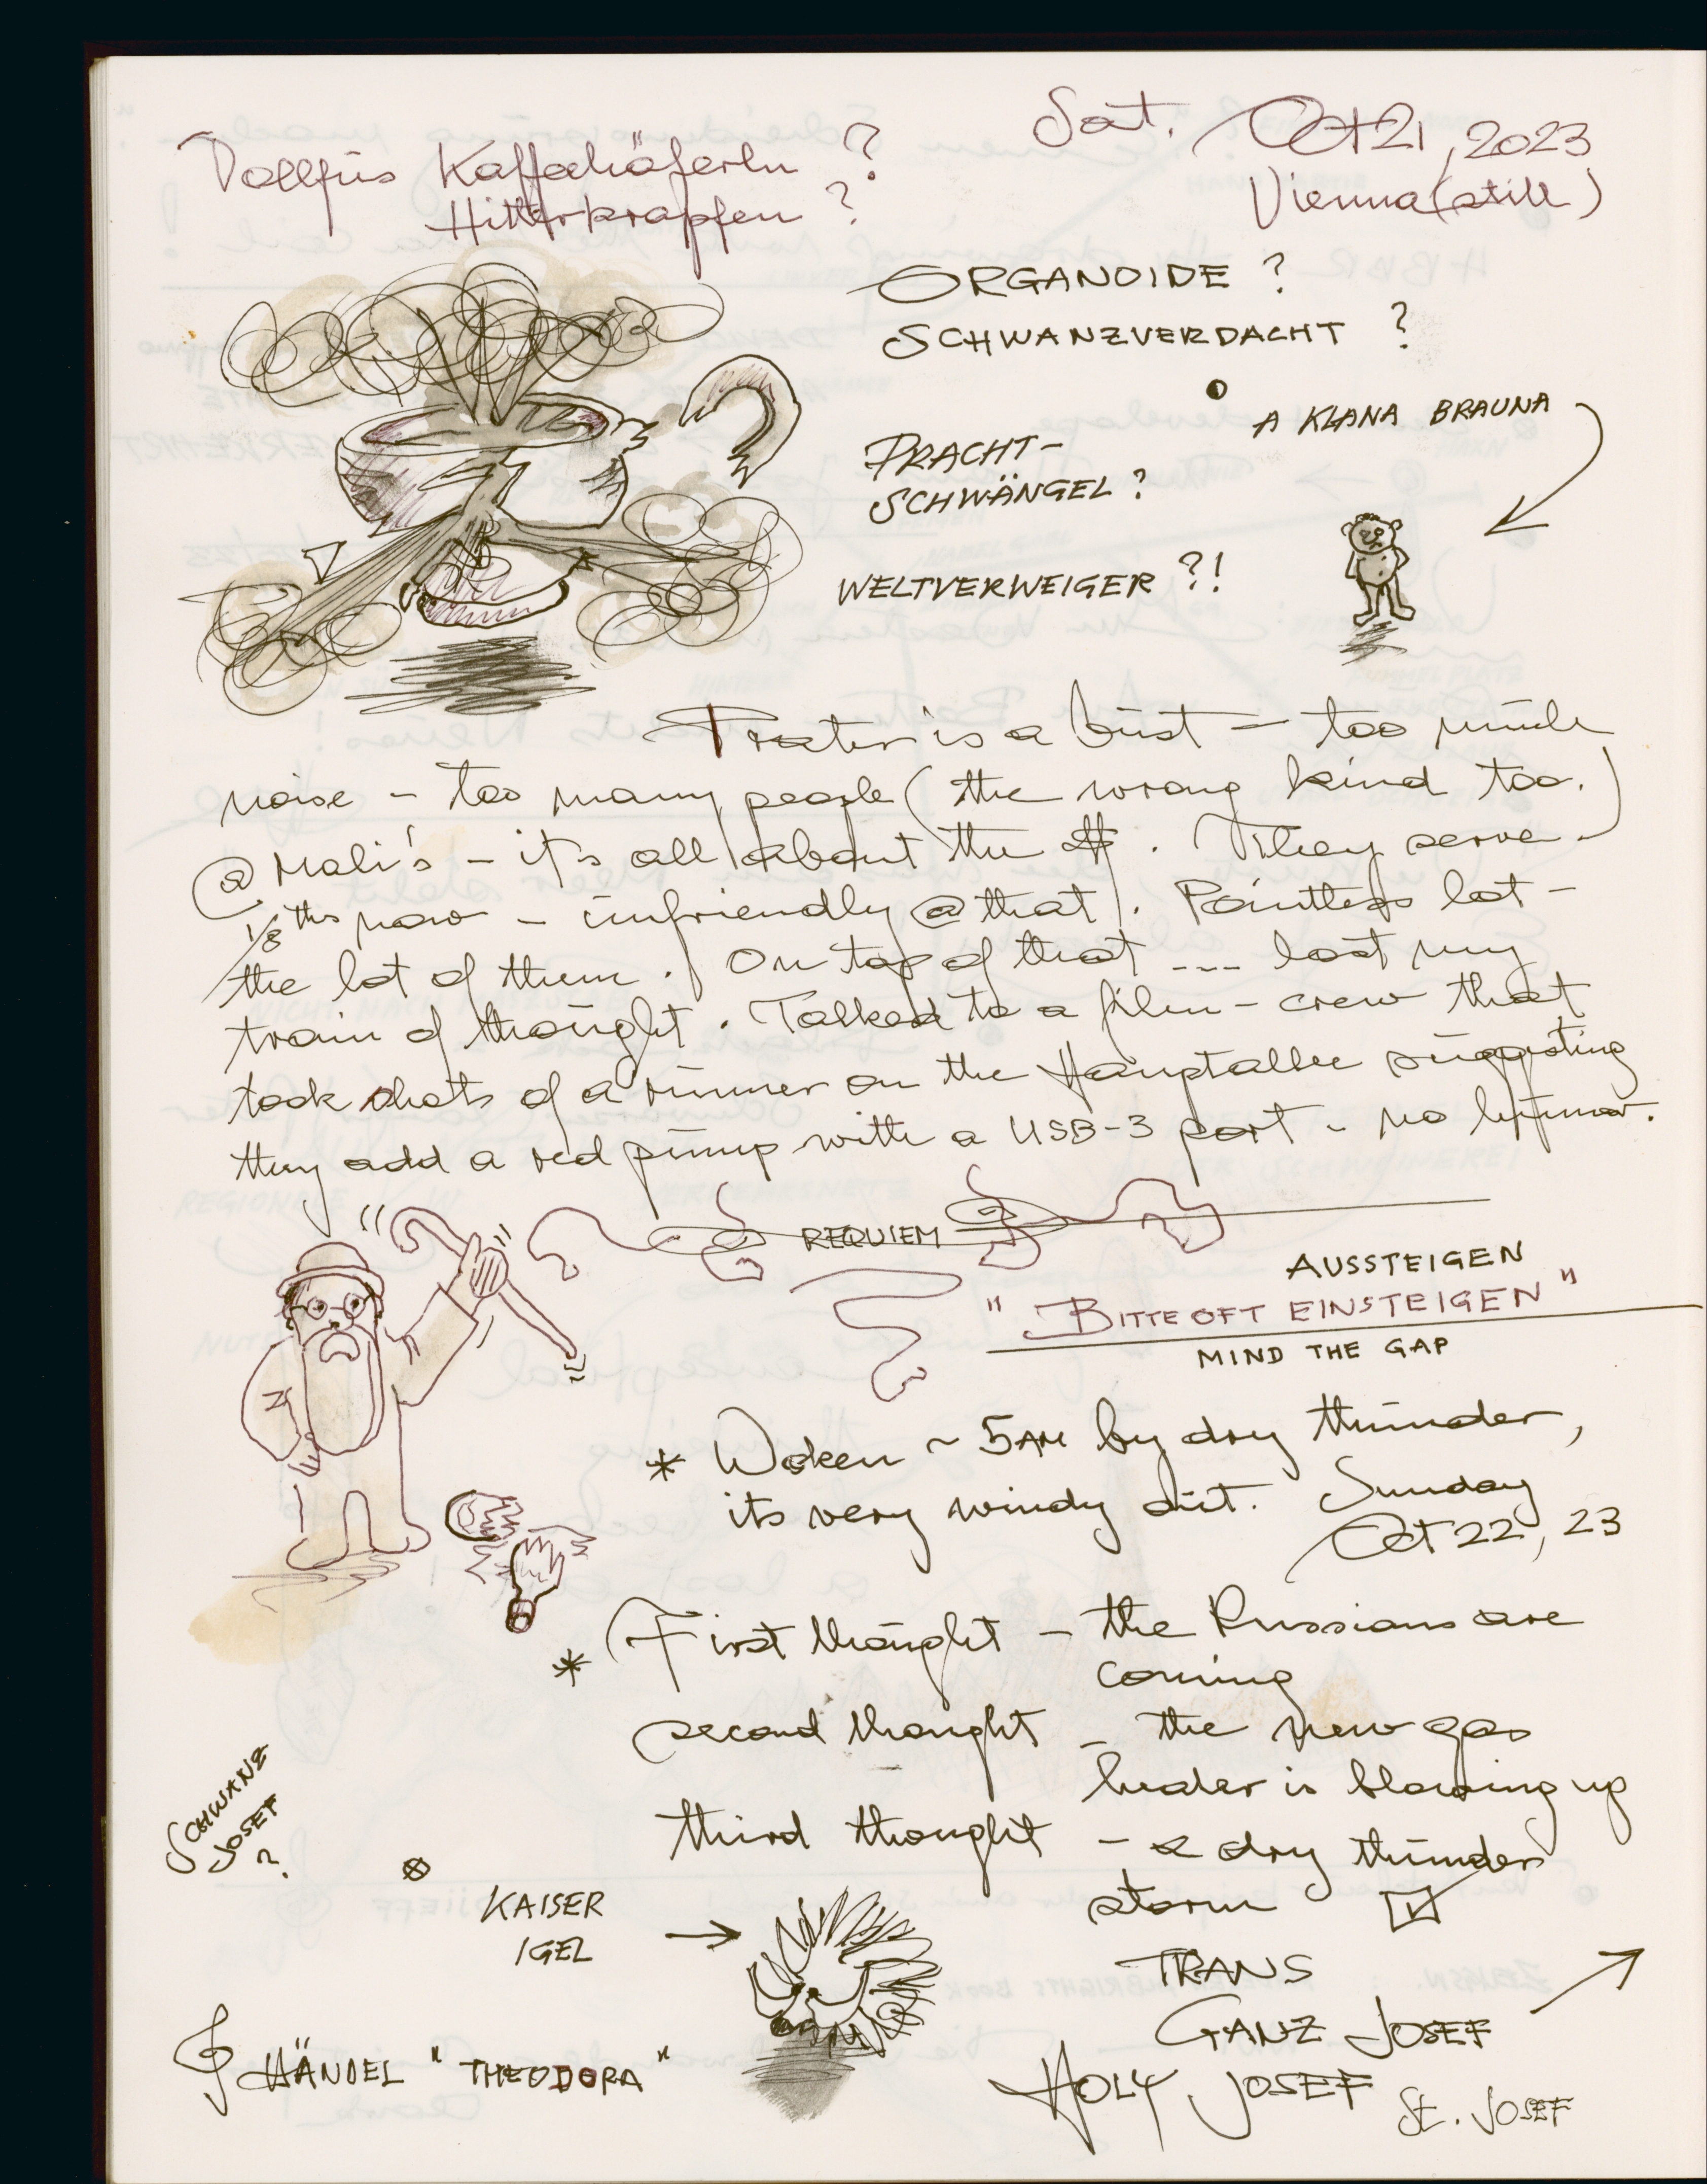 Sat. Oct 21, 2023
Vienna (still)
Dollfus Kaffeehäferln ?
Hitlerkrapfen ?
ORGANOIDE ?
SCHWANZVERDACHT ?
A KLANA BRAUNA
PRACHT-
SCHWÄNGEL ?
WELTVERWEIGER ?!
Prater is a bust – too much
noise – too many people (the wrong kind too.)
@ Mali's – it's all about the $. They serve
1/8ths now – unfriendly @ that. Pointless lot –
the lot of them. On top of that .... lost my
train of thought. Talked to a film-crew that
took shots of a runner on the Hauptallee suggesting
they add a red pump with a USB-3 port – no humor.
REQUIEM
AUSSTEIGEN
"BITTE OFT EINSTEIGEN"
MIND THE GAP
* Woken ~ 5AM by dry thunder,
its very windy out. Sunday
Oct 22, 23
* First thought – the Russians are
coming
second thought – the new gas
heater is blowing up
third thought – a dry thunder
storm
SCHWANZ
JOSEF
?
KAISER
IGEL
TRANS
GANZ JOSEF
HOLY JOSEF
St. JOSEF
HÄNDEL "THEODORA"